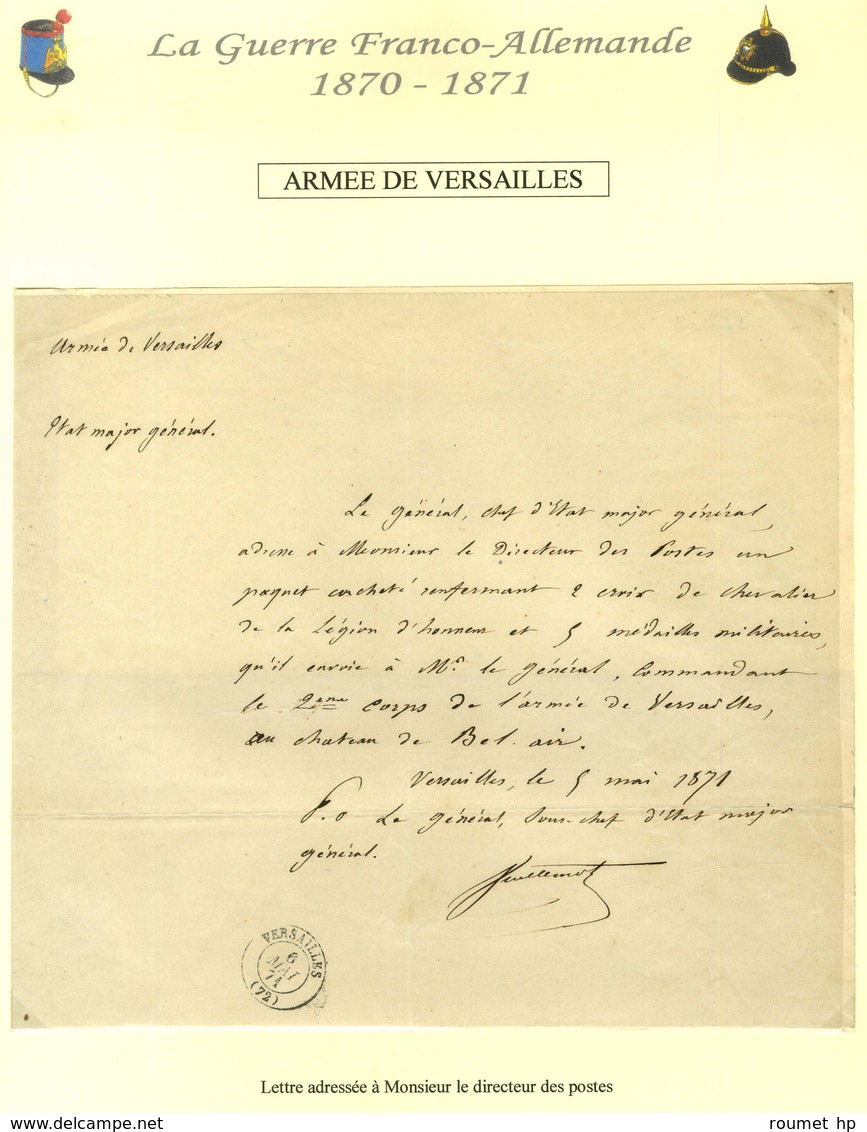 La Guerre Franco-Allemande
1870 - 1871
ARMEE DE VERSAILLES
Armée de Versailles
Etat major général.
Le général, chef d'Etat major général,
adresse à Monsieur le Directeur des Postes un
paquet cacheté renfermant 2 croix de chevalier
de la Légion d'honneur et 5 médailles militaires,
qu'il envoie à Mr. le général, commandant
le 2ème corps de l'armée de Versailles,
au chateau de Bel-air.
Versailles, le 5 mai 1871
P.o Le général, sous-chef d'Etat major
général.
VERSAILLES
6
MAI
71
(72)
Lettre adressée à Monsieur le directeur des postes
www.delcampe.net
roumet hp